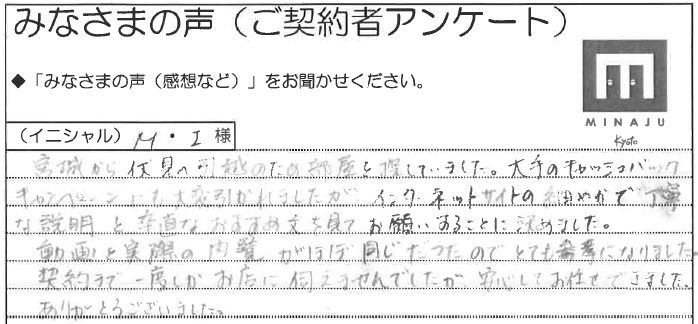 みなさまの声（ご契約者アンケート）
◆「みなさまの声（感想など）」をお聞かせください。
MINAJU
Kyoto
（イニシャル） M・I 様
宮城から伏見へ引越のため部屋を探していました。大手のキャッシュバック
キャンペーンにも大変引かれましたが インターネットサイトの細やかで丁寧
な説明と率直なおすすめ文を見てお願いすることに決めました。
動画と実際の内覧がほぼ同じだったのでとても参考になりました。
契約まで一度しかお店に伺えませんでしたが安心してお任せできました。
ありがとうございました。